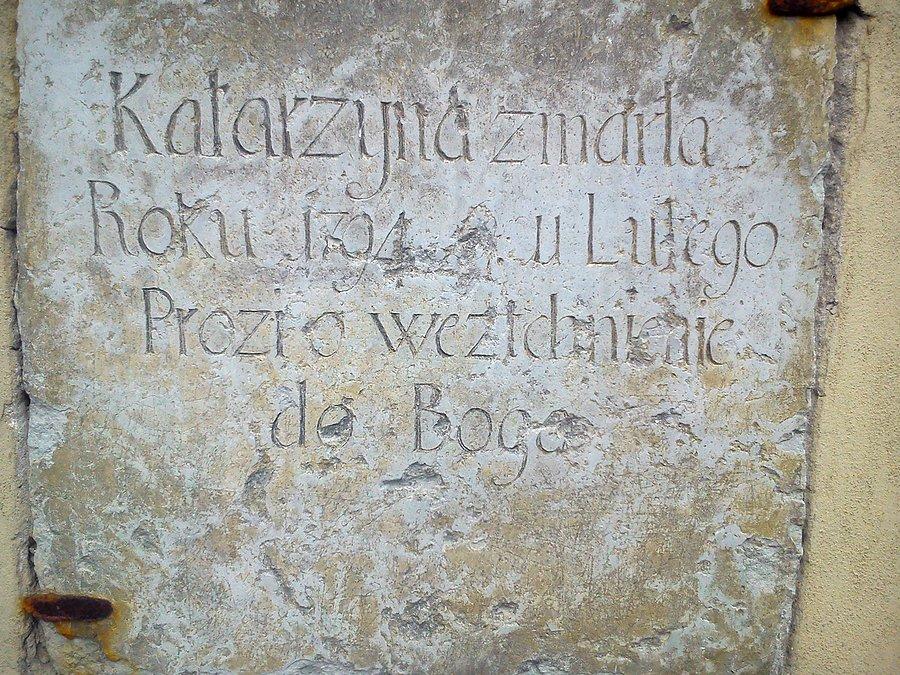 Katarzyna zmarła
Roku 1794 u Lutego
Prozi o weztchnienie
do Boga